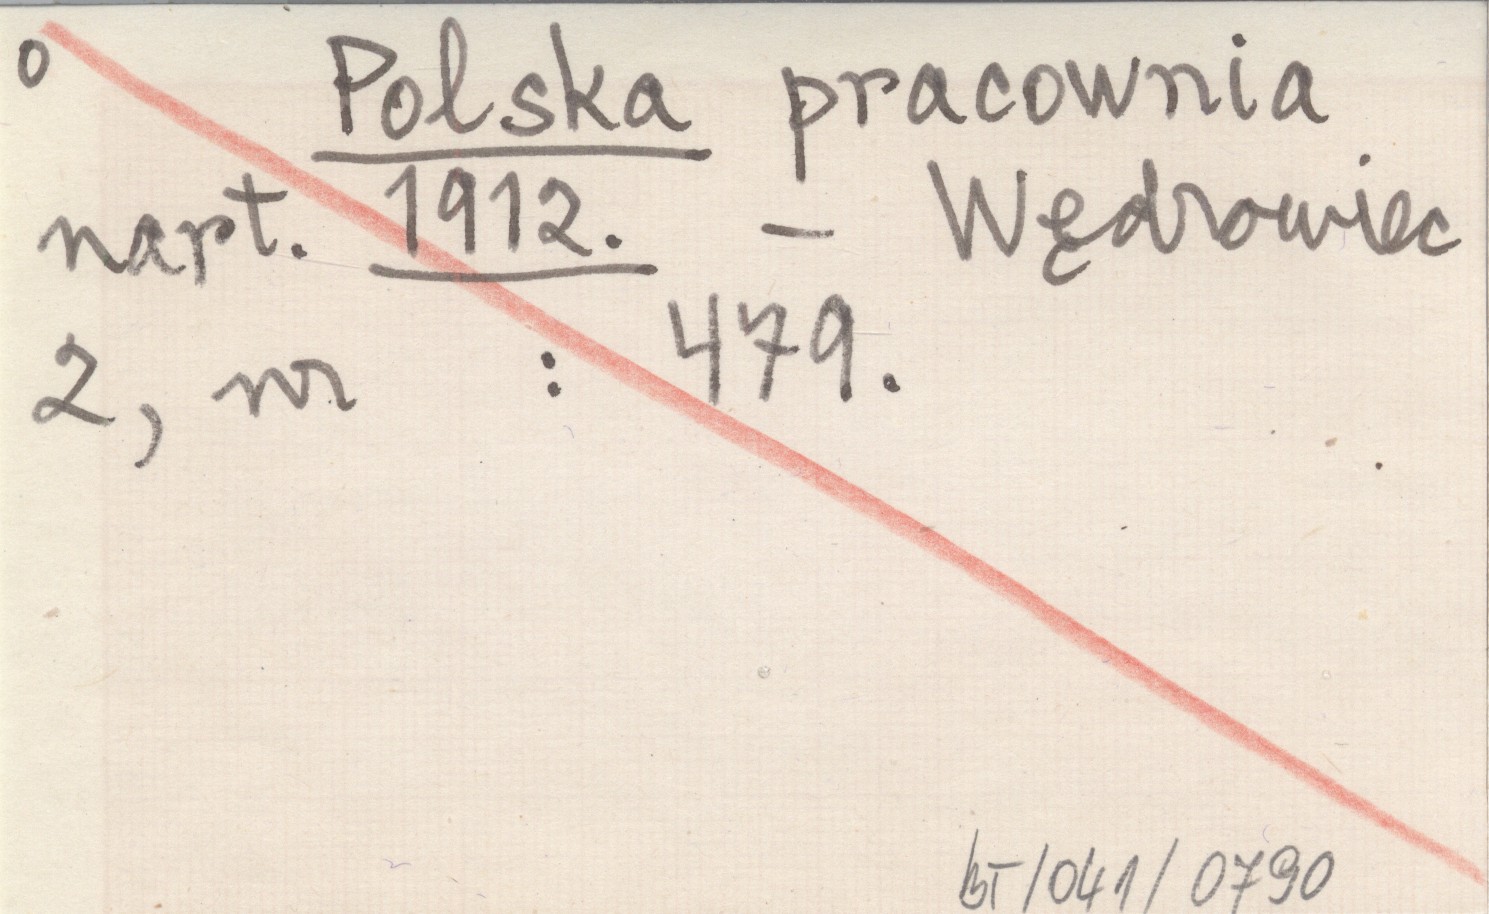 0 Polska pracownia
nart. 1912. – Wędrowiec
2, nr : 479.
bT/041/0790